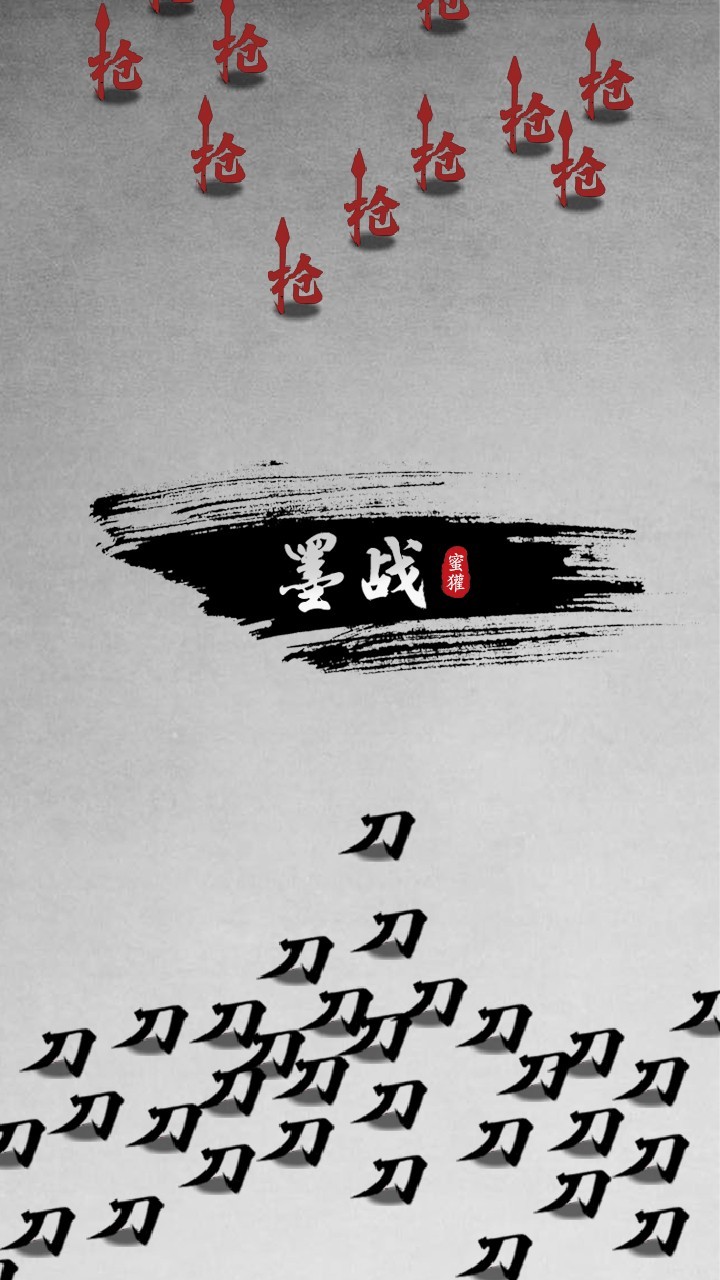 枪 枪 枪
枪 枪 枪 枪
枪
枪
墨战
蜜獾
刀
刀
刀
刀 刀
刀 刀 刀 刀
刀 刀 刀
刀 刀 刀
刀 刀
刀 刀 刀
刀 刀 刀
刀 刀 刀
刀
刀 刀 刀
刀